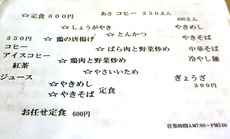 ☆定食600円 あさ コヒー 350えん
400えん
☆しょうがやき やきめし
☆とんかつ
350円 ☆鶏の唐揚げ やきそば
コヒー ☆ばら肉と野菜炒め 中華そば
アイスコヒー ☆鶏肉と野菜炒め 冷やし麺
紅茶 ☆やさいいため
ジュース ぎょうざ
☆やきめし 200円
☆やきそば 定食
お任せ定食 600円
営業時間AM7:00~PM3:00